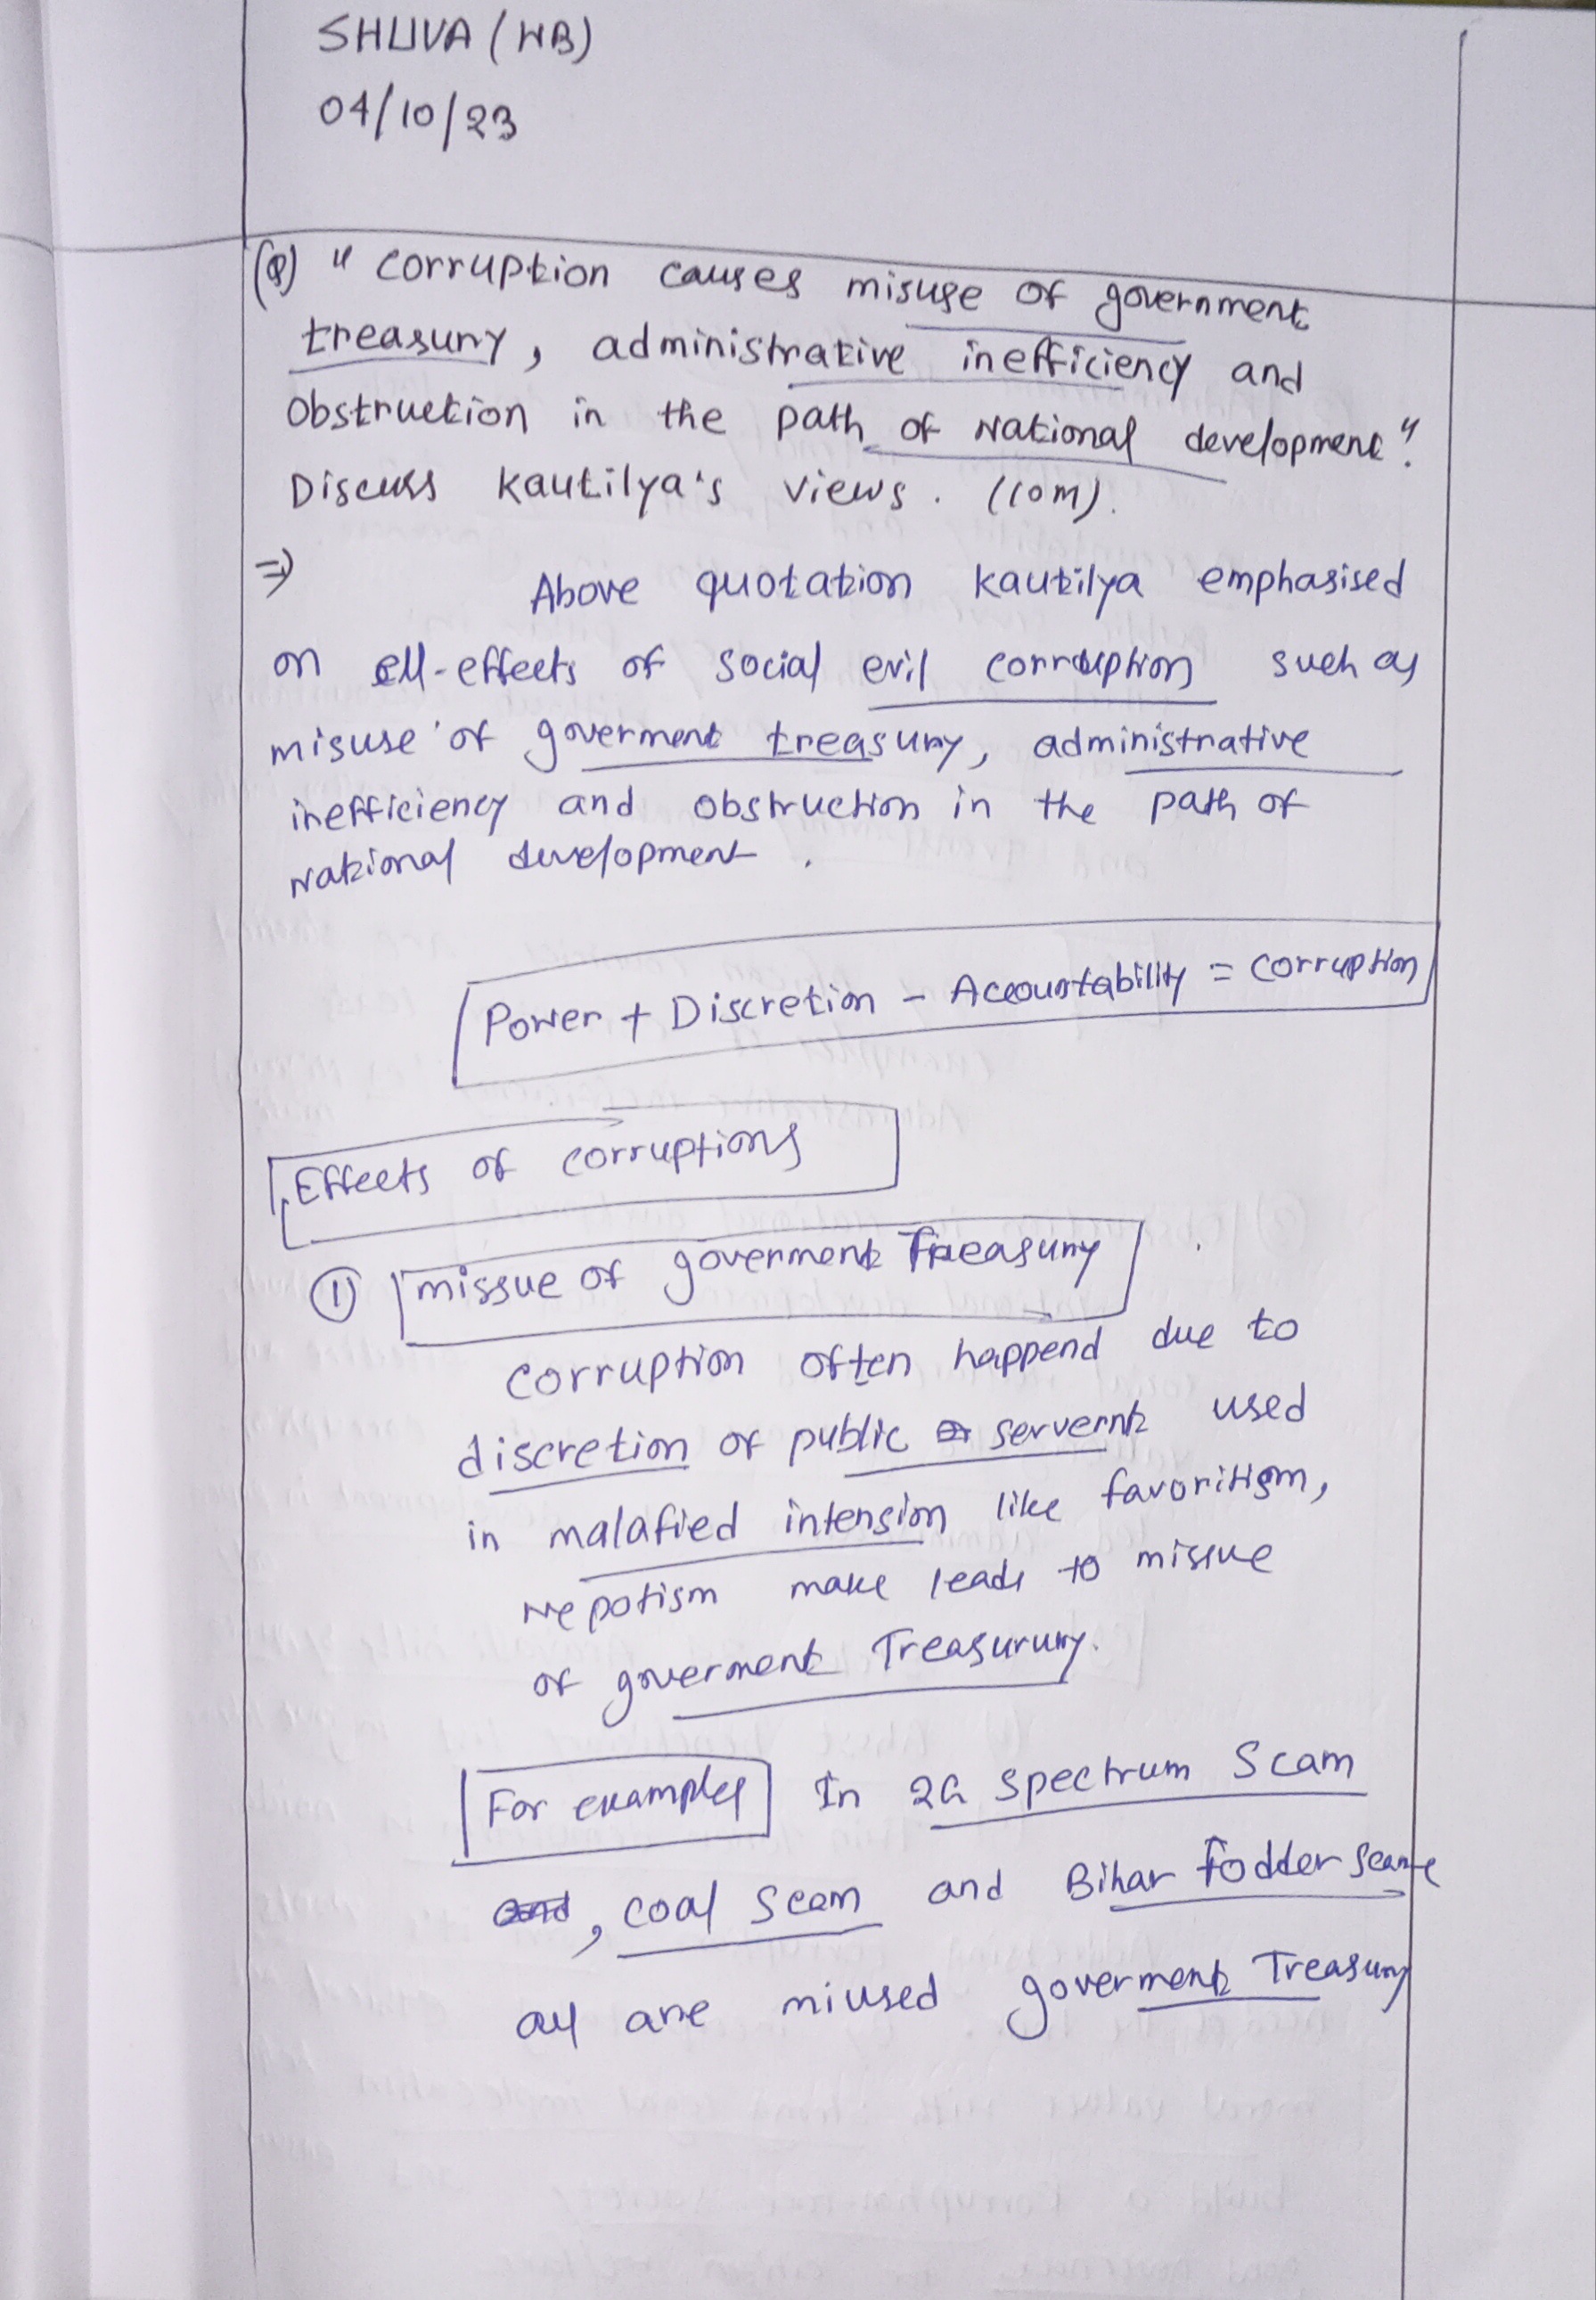 SHUVA (WB)
04/10/23
(Q) " Corruption causes misuse of government
treasury, administrative inefficiency and
Obstruction in the path of National development".
Discuss Kautilya's views. (10m).
⇒ Above quotation Kautilya emphasised
on ell-effects of social evil corruption such as
misuse of goverment treasury, administrative
inefficiency and obstruction in the path of
National development.
Power + Discretion - Accountability = Corruption
Effects of corruptions
① missue of goverment Treasury
Corruption often happend due to
discretion of public servernt used
in malafied intension like favoritism,
Nepotism make leads to missue
of goverment Treasurury.
For examples In 2G Spectrum Scam
and, Coal Scam and Bihar fodder Scame
all are miused goverment Treasury